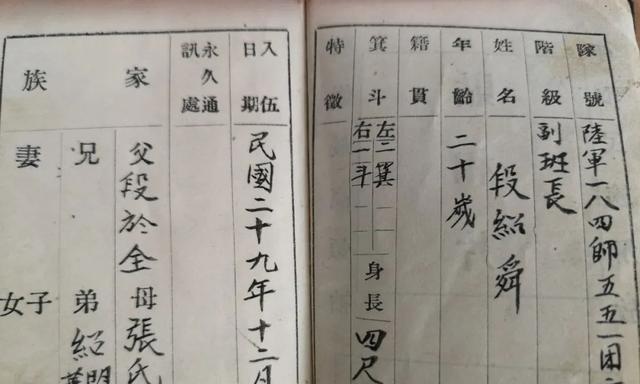 隊號 陸軍一八四師五五一团
階級 副班長
姓名 段紹舜
年齡 二十歲
籍貫
箕斗 左二箕 右二斗 身長 四尺
特徵
入伍日期 民國二十九年十二月
永久通訊處
家族 父段於全 母張氏
兄 弟 紹
妻 子女